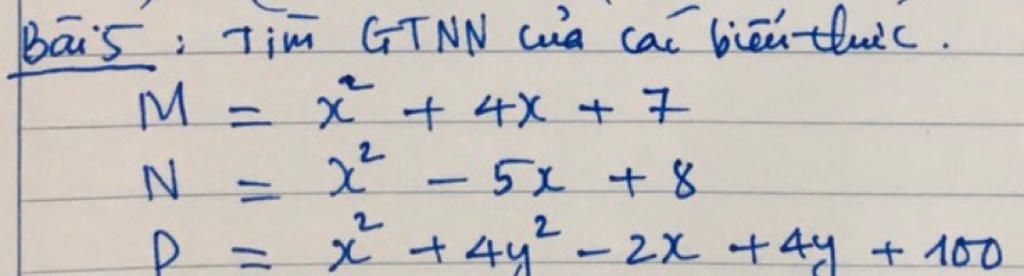 Bài 5 : Tìm GTNN của các biểu thức.
M = x² + 4x + 7
N = x² - 5x + 8
P = x² + 4y² - 2x + 4y + 100